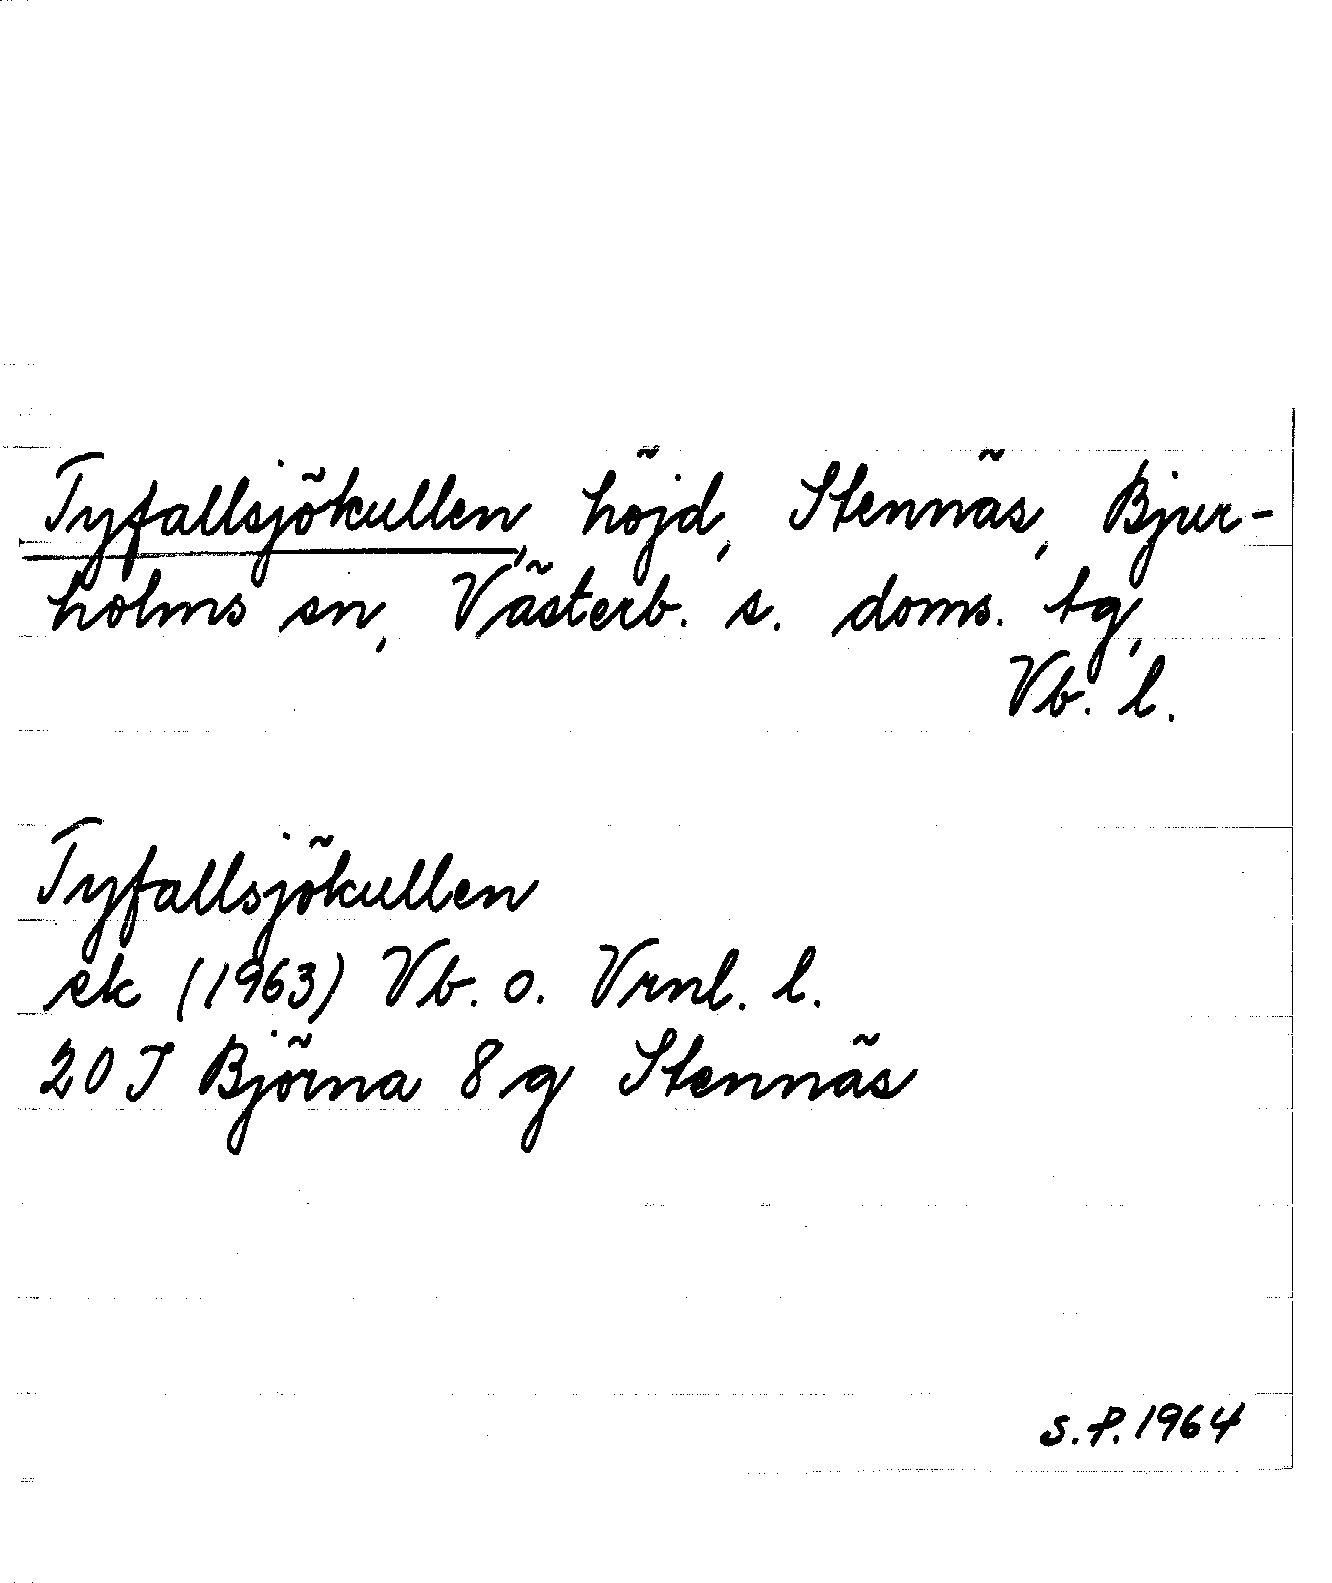 Tyfallsjökullen, höjd, Stennäs, Bjur-
holms sn, Västerb. s. doms. tg,
Vb. l.
Tyfallsjökullen
ek (1963) Vb. o. Vrnl. l.
20 J Björna 8 g Stennäs
S.P. 1964